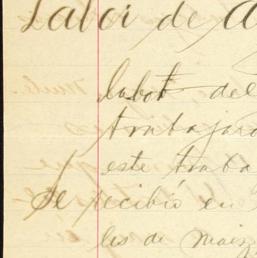 Labor de a
labor del
trabajaro
este traba
Se recibió en
les de maiz